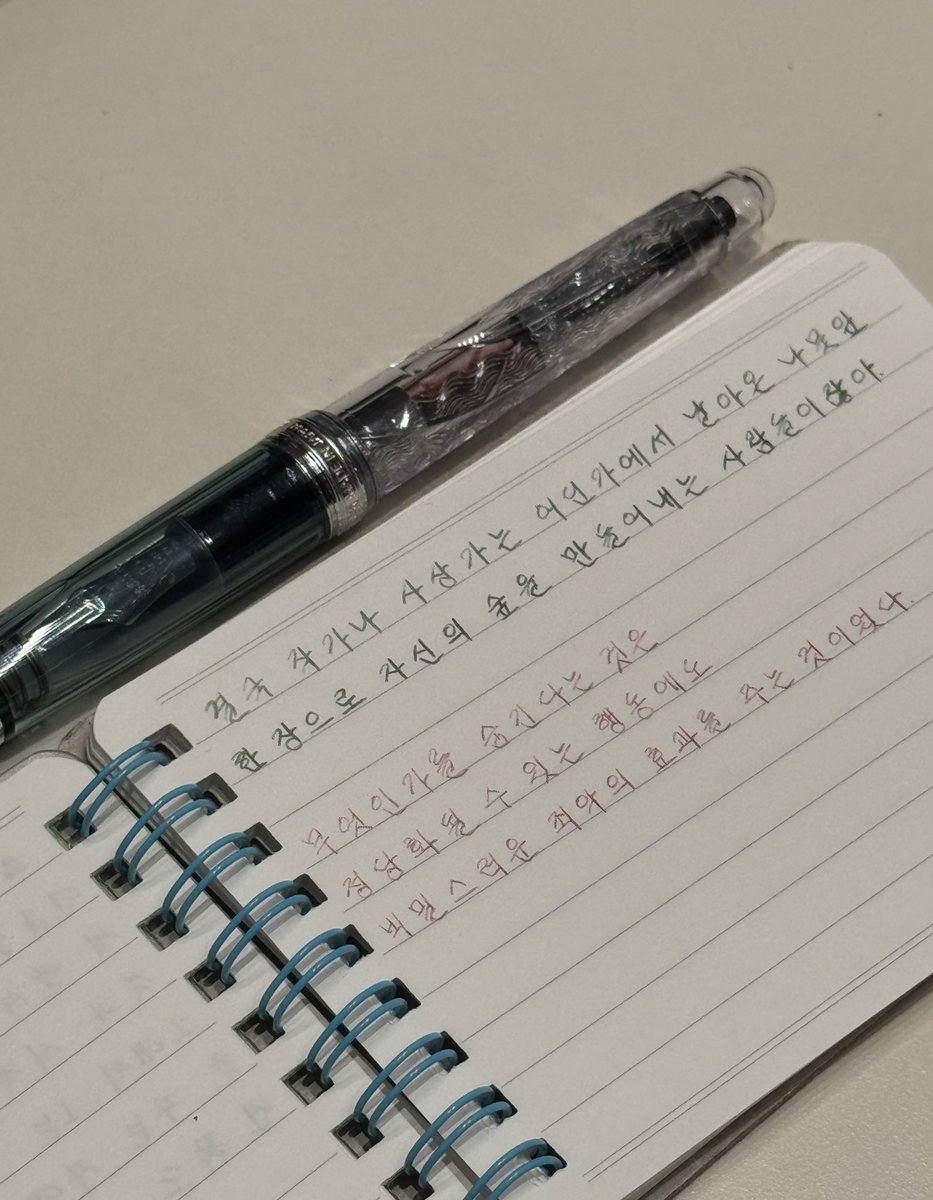 결국 작가나 사상가는 어딘가에서 날아온 나뭇잎
한 장으로 자신의 숲을 만들어내는 사람들이잖아.
무엇인가를 숨긴다는 것은
정당화될 수 있는 행동에도
비밀스러운 죄악의 효과를 주는 것이었다.
MADE IN